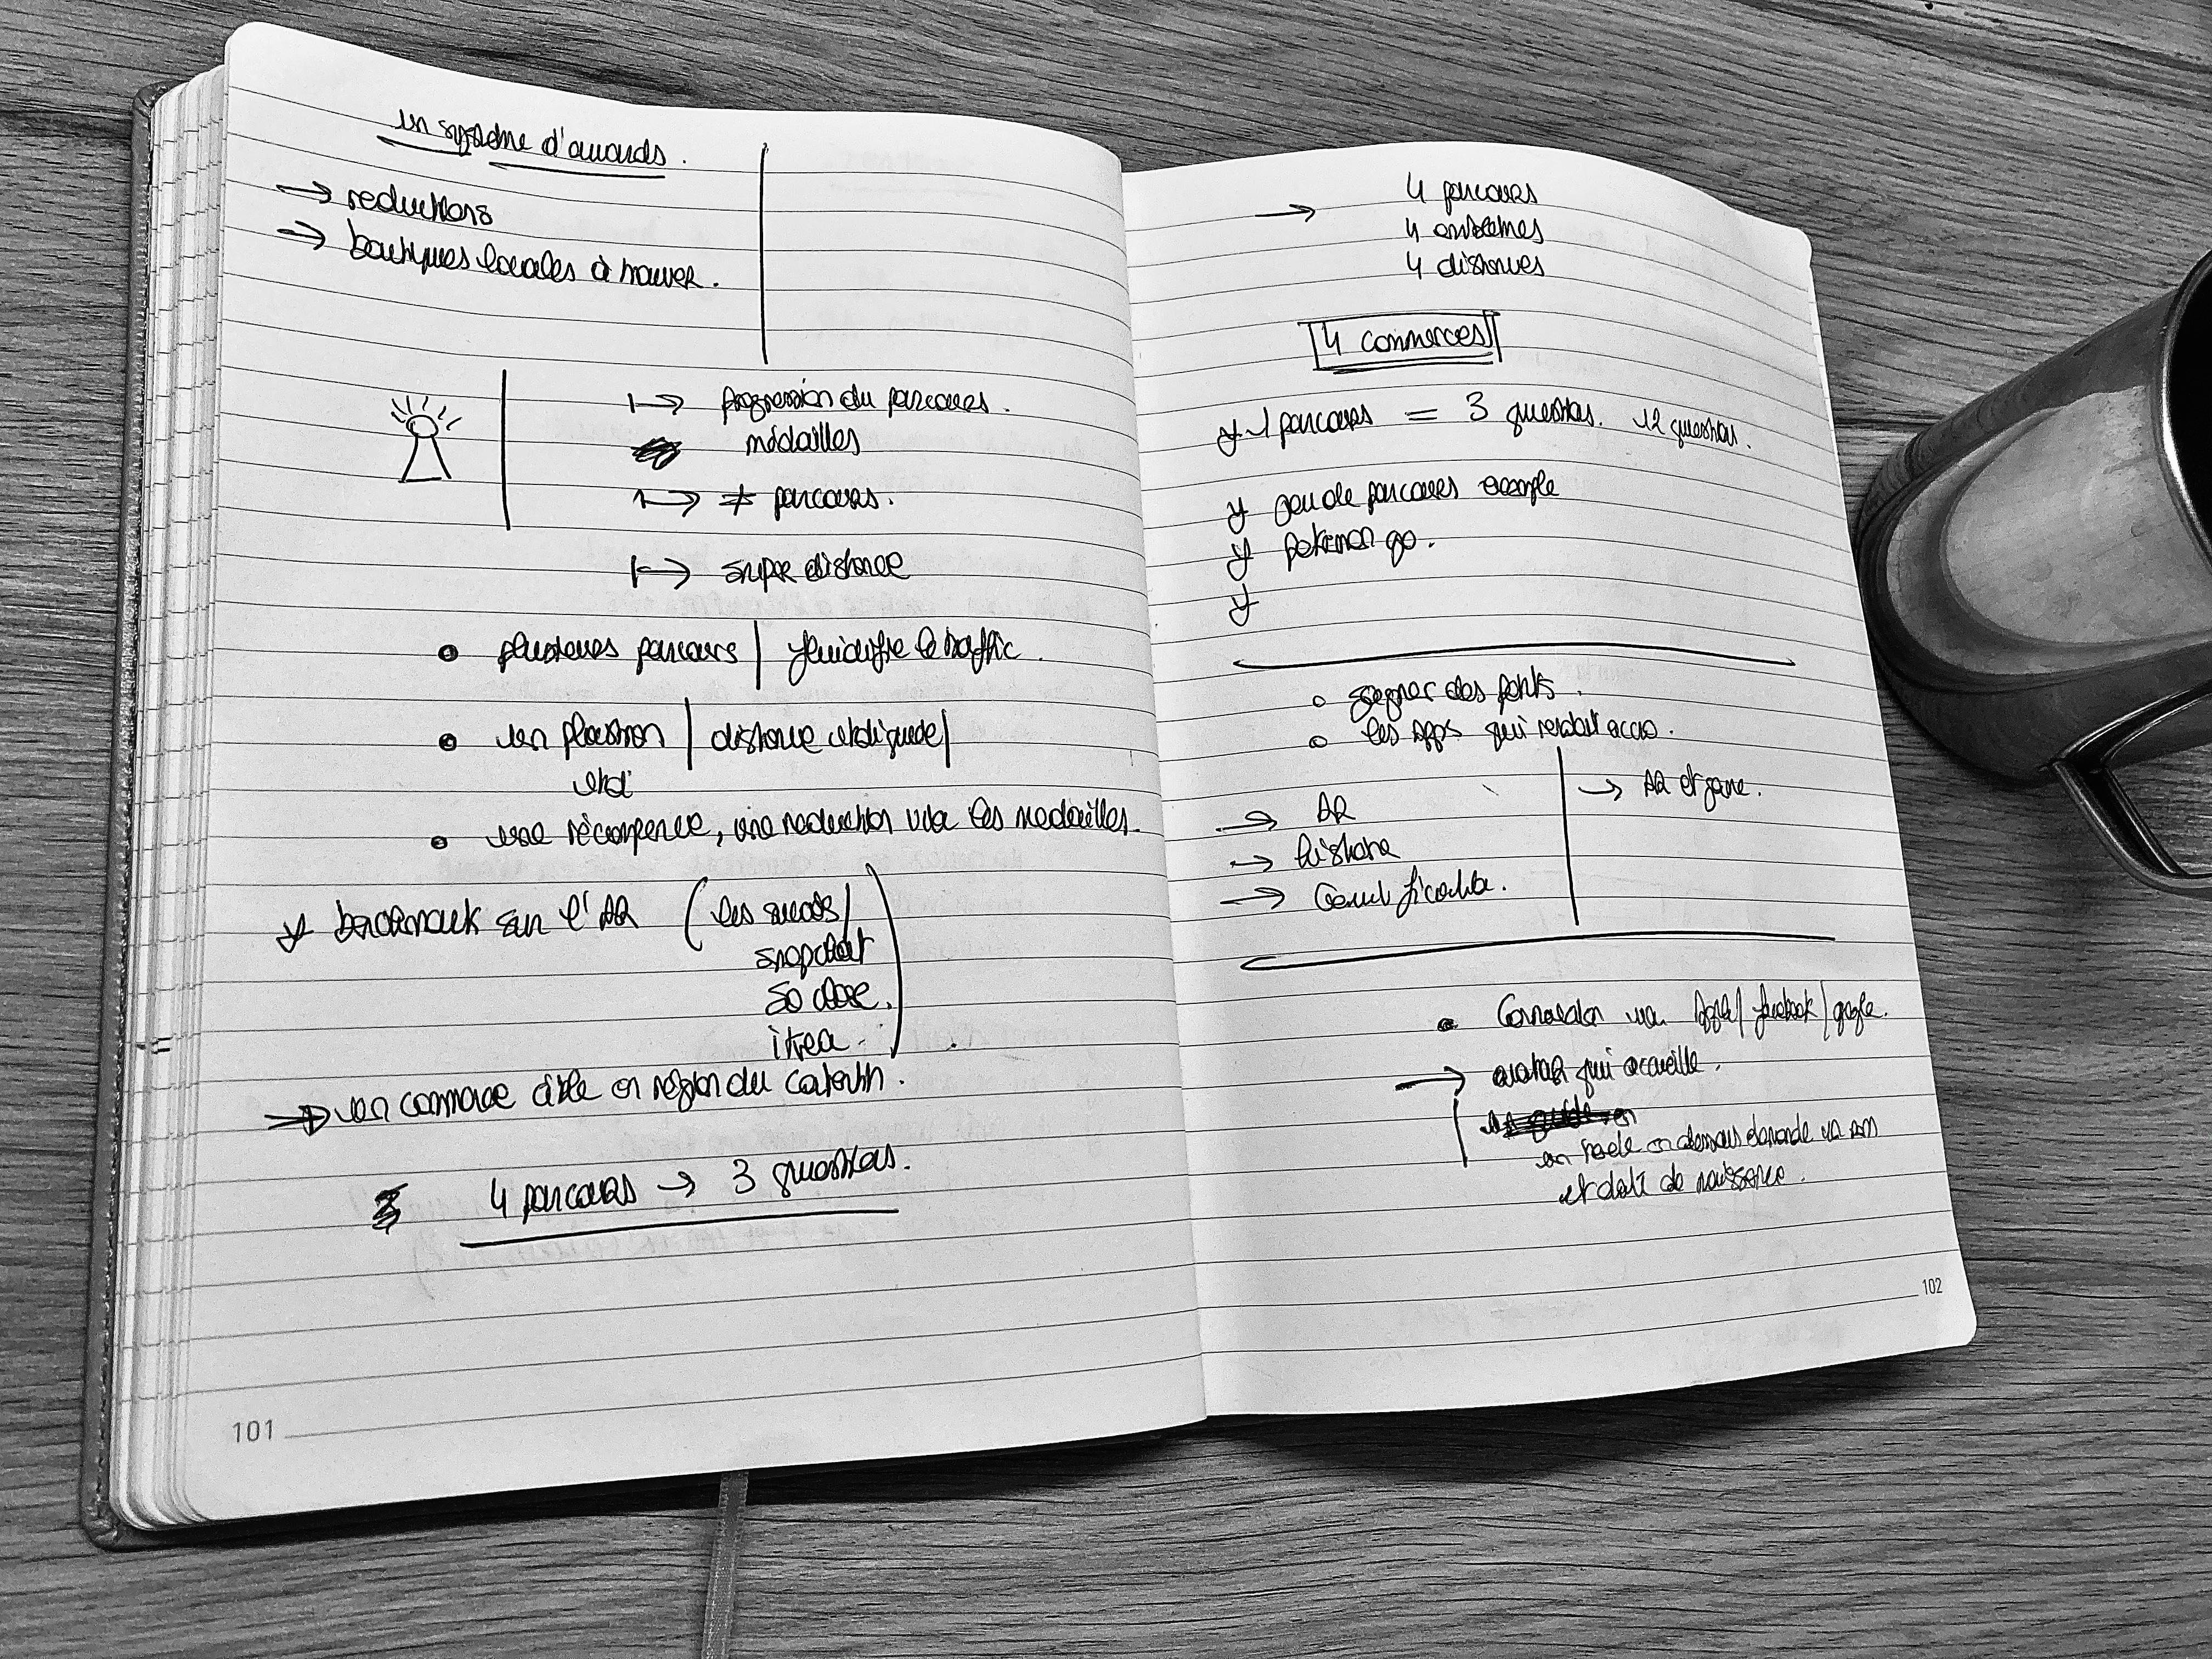 un système d'awards.
→ reductions
→ boutiques locales à trouver.
↦ progression du parcours.
médailles
↦ ≠ parcours.
↦ super distance
• plusieurs parcours | fluidifie le traffic.
• un plastron | distance |
• une récompense, une reduction via les medailles.
benchmark sur l'AR (les
snapchat
ikea.
→ un commerce cible en région du
4 parcours → 3 questions.
101
→ 4 parcours
4
4 distances
4 commerces
1 parcours = 3 questions. 12 questions.
jeu de parcours exemple
pokemon go.
○ gagner des points.
○ les Apps qui
→ AR
→ AR et game.
→ histoire
→
• Connexion via Apple/facebook/google.
→ avatar qui accueille.
on demande un nom
et date de naissance.
102